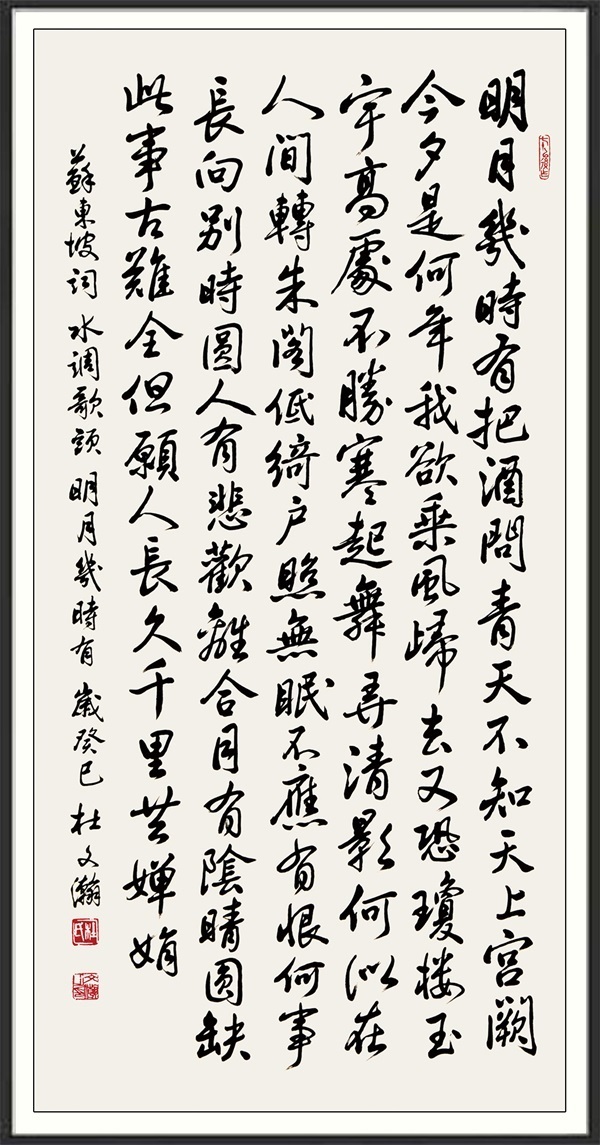 明月幾時有把酒問青天不知天上宮闕
今夕是何年我欲乘風歸去又恐瓊樓玉
宇高處不勝寒起舞弄清影何似在
人間轉朱閣低綺户照無眠不應有恨何事
長向別時圓人有悲歡離合月有陰晴圓缺
此事古難全但願人長久千里共嬋娟
蘇東坡詞 水調歌頭 明月幾時有 歲癸巳 杜文瀚
杜氏